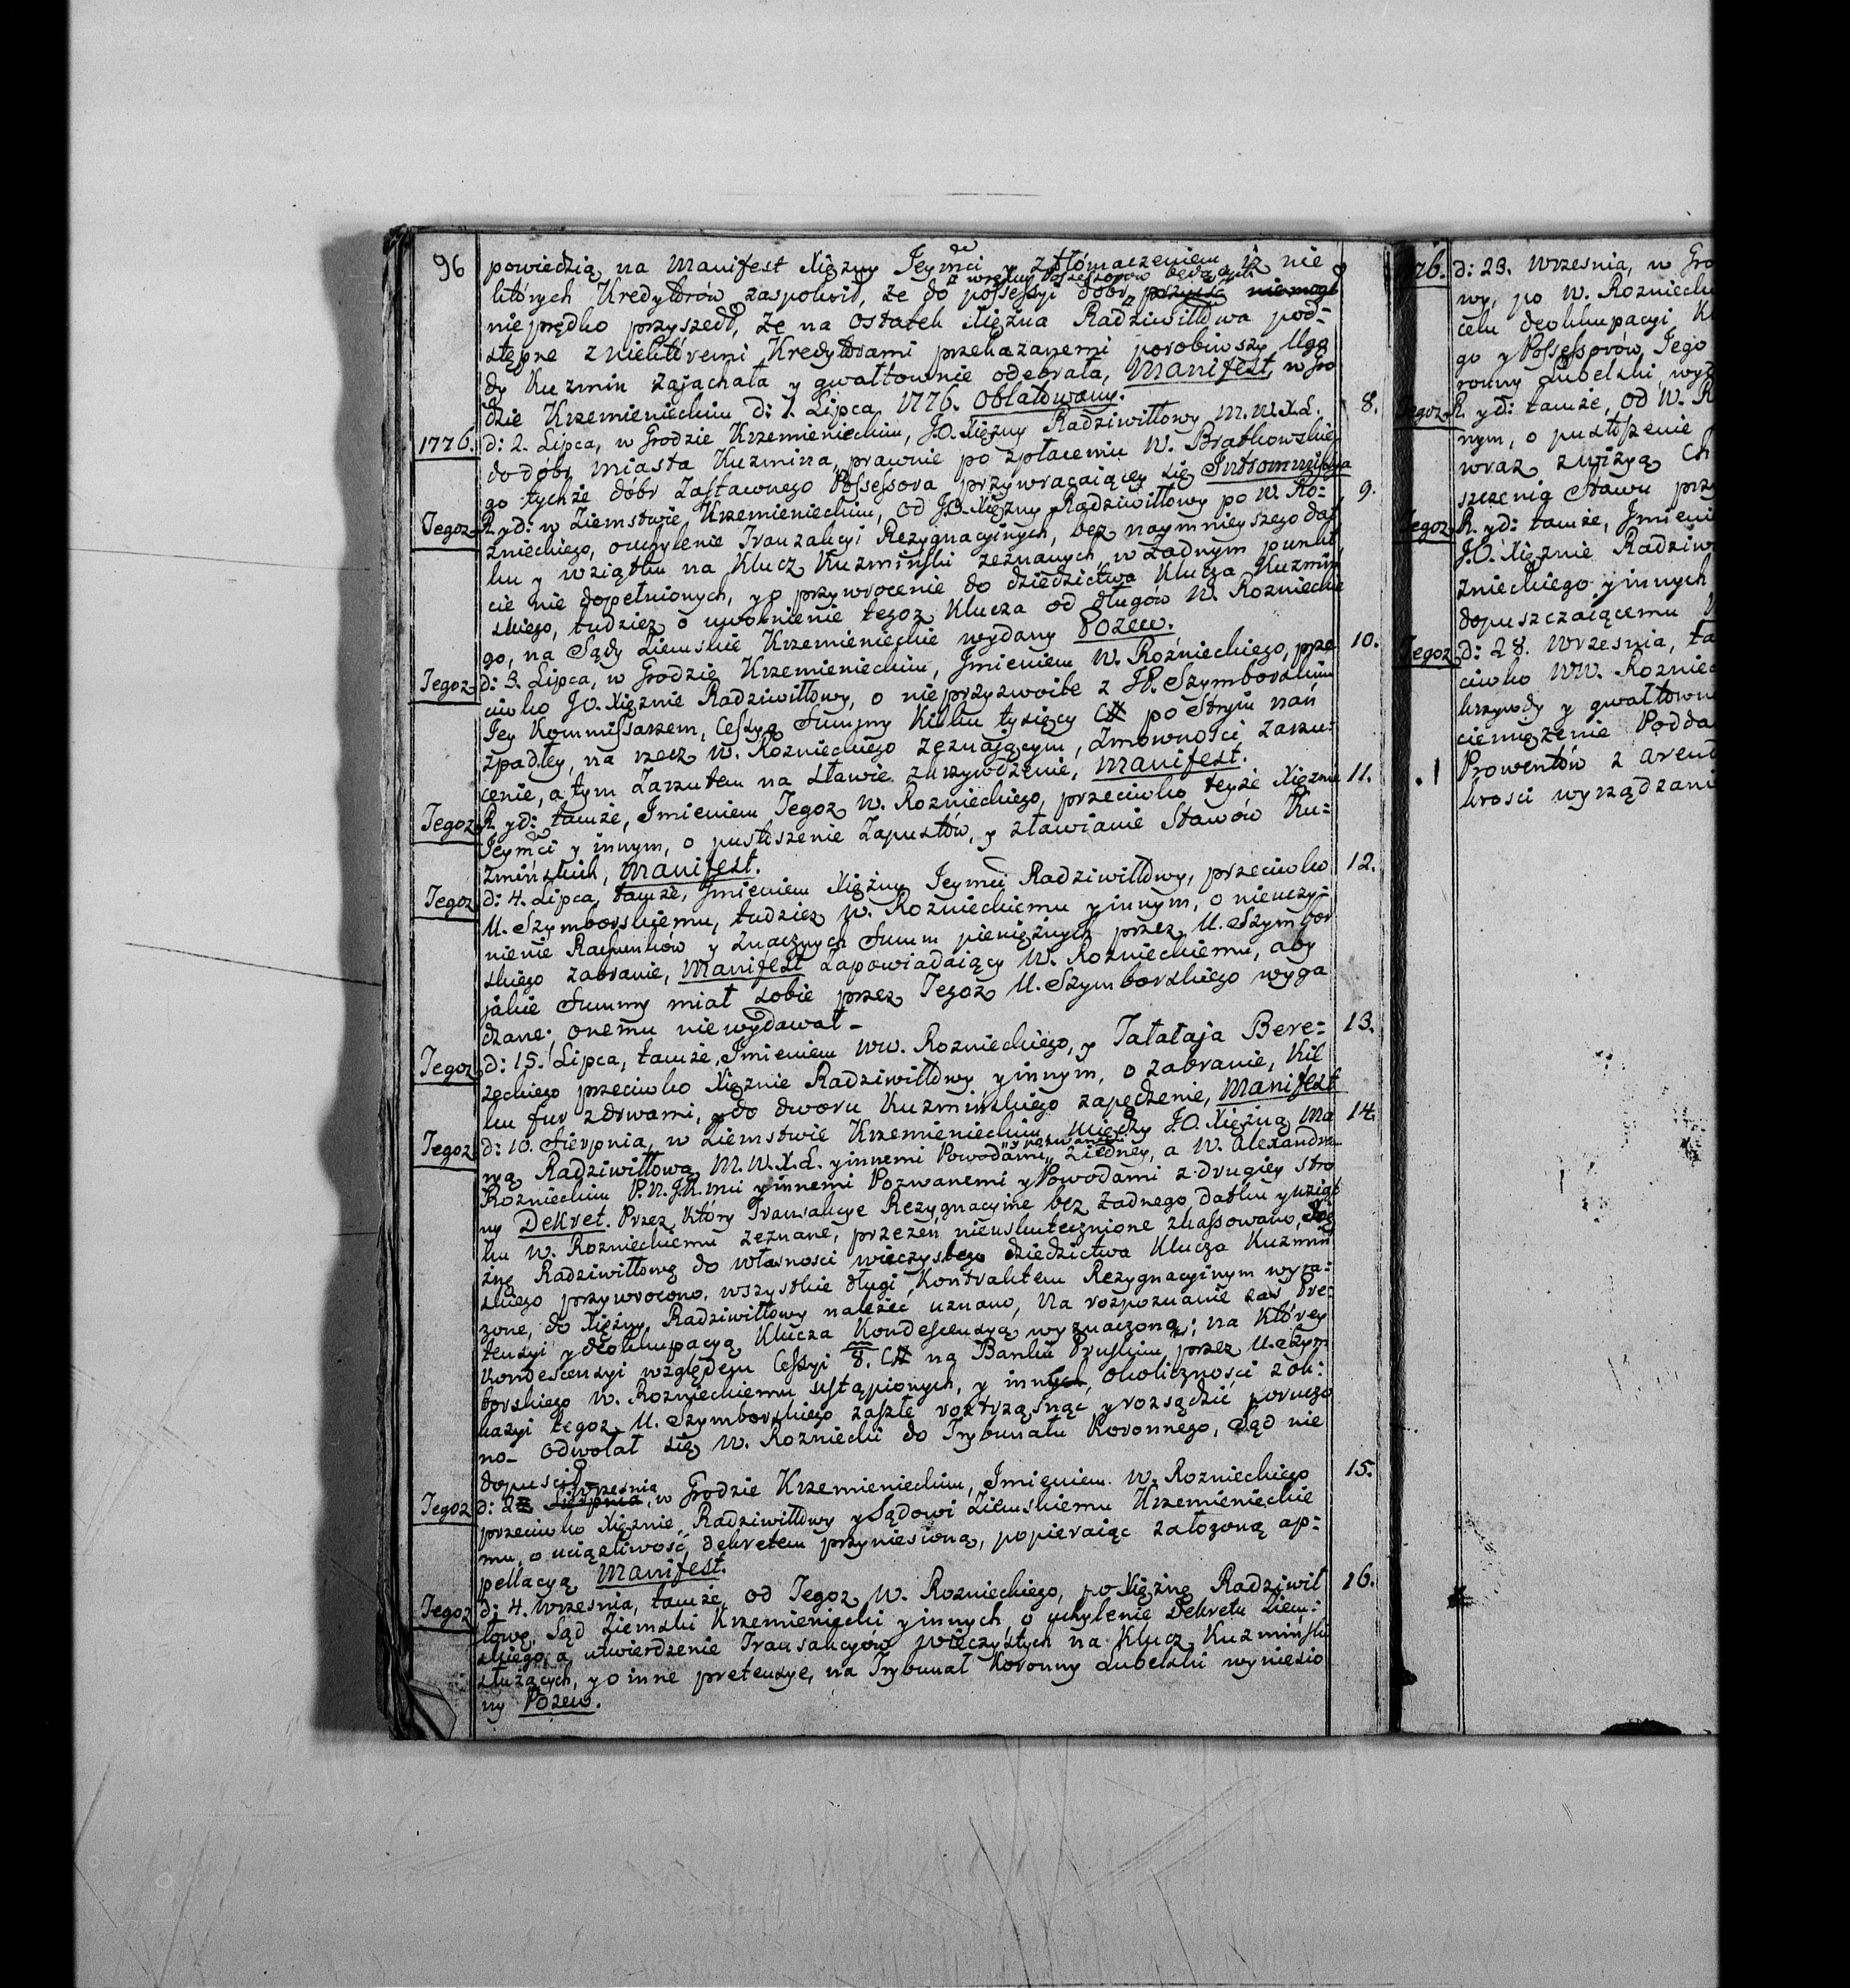 96
powiedzią na Manifest Xięzny Jeymci y ztłómaczeniem iz nie
których Kredytorów zaspokoił, ze do possessyi dobr w ręku Possessorow będących przyyść niemogł
nieprędko przyszedł, ze na ostatek Xięzna Radziwiłłowa pod-
stępne zniektóremi Kredytorami przekazanemi porobiwszy Ugo
dy Kuzmin zajachała y gwałtownie odebrała, Manifest, w Gro
dzie Krzemienieckim d: 1. Lipca 1776. oblatowany.
1776. d: 2. Lipca, w Grodzie Krzemienieckim, J.O. Xięzny Radziwiłłowy M.W.X.L. 8.
do dóbr Miasta Kuzmina, prawnie po zpłaceniu W. Bratkowskie
go tychże dóbr zastawnego Possessora przywracaiącey się Intromissya
Tegoz R. y d: w Ziemstwie Krzemienieckim, od J.O. Xięzny Radziwiłłowy po W. Ro- 9.
znieckiego, ouchylenie Tranzakcyi Rezygnacyinych, bez naymnieyszego dat
ku y wziątku na Klucz Kuzminski zeznanych, w żadnym punk
cie nie dopełnionych, y o przywrocenie do dziedzictwa Klucza Kuzmin
skiego, tudziez o uwolnienie tegoz Klucza od długów W. Roznieckie
go, na Sądy Ziemskie Krzemienieckie wydany Pozew.
Tegoz d: 3. Lipca, w Grodzie Krzemienieckim, Jmieniem W. Roźnieckiego, prze 10.
ciwko JO. Xięznie Radziwiłłowy, o nieprzyzwoite z JP. Szymborskim
Jey Kommissarzem, Cessyą Summy Kilku tysięcy po Stryiu nań
zpadłey, na rzecz W. Roznieckiego zeznającym, zmowności zarzu-
cenie, a tym zarzutem na sławie zkrzywdzenie, Manifest.
Tegoz R. y d: tamże, Imieniem Tegoz W. Roznieckiego, przeciwko teyże Xięznie 11.
Jeymci y innym, o pustoszenie Zapustów, y zławianie Stawów Ku-
zmińskich, Manifest.
Tegoz d: 4. Lipca, tamże, Jmieniem Xięzny Jeymci Radziwiłłowy, przeciwko 12.
U. Szymborskiemu, tudziez W. Roznieckiemu y innym, o nieuczy-
nienie Rachunków y znacznych Summ pieniężnych przez U. Szymbor
skiego zabranie, Manifest zapowiadaiący W. Roznieckiemu, aby
jakie Summy miał sobie przez Tegoz U. Szymborskiego wyga
dzane; onemu niewydawał –
Tegoz d: 15. Lipca, tamże, Imieniem WW. Roznieckiego, y Tatałaja Bere- 13.
zeckiego przeciwko Xięznie Radziwiłłowy y innym, o zabranie, Kil
ku fur zdrwami, y do dworu Kuzminskiego zapędzenie, Manifest
Tegoz d: 10. Sierpnia, w Ziemstwie Krzemienieckim, między J.O. Xięzną Ma 14.
ryą Radziwiłłową M.W.X.L. y innemi Powodami y pozwanemi ziedney, a W. Alexandrem
Roznieckim P.N.J.K.mci y innemi Pozwanemi y Powodami z drugiey stro
ny Dekret. Przez Który Transakcye Rezygnacyine bez żadnego datku y wziąt
ku W. Roznieckiemu zeznane, przezeń nieuskutecznione zkassowano, Xię
żnę Radziwiłłową do własnosci wieczystego dziedzictwa Klucza Kuzmin
skiego przywrocono, wszystkie długi Kontraktem Rezygnacyinym wyra-
zone, do Xiężny Radziwiłłowy należeć uznano, Na rozpoznanie zas Pre-
tensyi y deokkupacyą Klucza Kondescensyą wyznaczoną; na Którey
Kondescensyi względem Cessyi 8. na Banku Pruskim, przez U. Szym
borskiego W. Roznieckiemu ustąpionych, y innych, okoliczności z ok-
kazyi tegoz U. Szymborskiego zaszłe roztrząsnąc y rozsądzić poruczo
no – odwołał się W. Rozniecki do Trybunału Koronnego, Sąd nie
dopuscił.
Tegoz d: 2 Sierpnia Wrzesnia, w Grodzie Krzemienieckim, Imieniem W. Roznieckiego 15.
przeciwko Xięznie Radziwiłłowy y Sądowi Ziemskiemu Krzemienieckie
mu, o uciążliwość dekretem przyniesioną, popieraiąc założoną ap-
pellacyą Manifest.
Tegoz d: 4. Wrzesnia, tamże, od Tegoz W. Roznieckiego, po Xiężnę Radziwił 16.
łowę, Sąd Ziemski Krzemieniecki y innych o uchylenie Dekretu Ziem-
skiego, a utwierdzenie Transakcyów wieczystych na Klucz Kuzminski
służących, y o inne pretensye, na Trybunał Koronny Lubelski wyniesio
ny Pozew.
d: 23. Wrzesnia, w Gro
wy, po W. Rozniecki
celu deokkupacyi K
go y Possessorów Jego
ronny Lubelski, wyd
Tegoz R. y d: tamże, od W. R
nym, o pustoszenie
wraz zwizyą Ch
szczenia Stawu przy
Tegoz R. y d: tamże, Jmienie
J.O. Xięznie Radziw
znieckiego y innych
dopuszczaiącemu
Tegoz d: 28. Wrzesnia, ta
ciwko WW. Rozniec
krzywdy y gwałtown
ciemięzenie Podda
Prowentów z arend
krosci wyrządzani